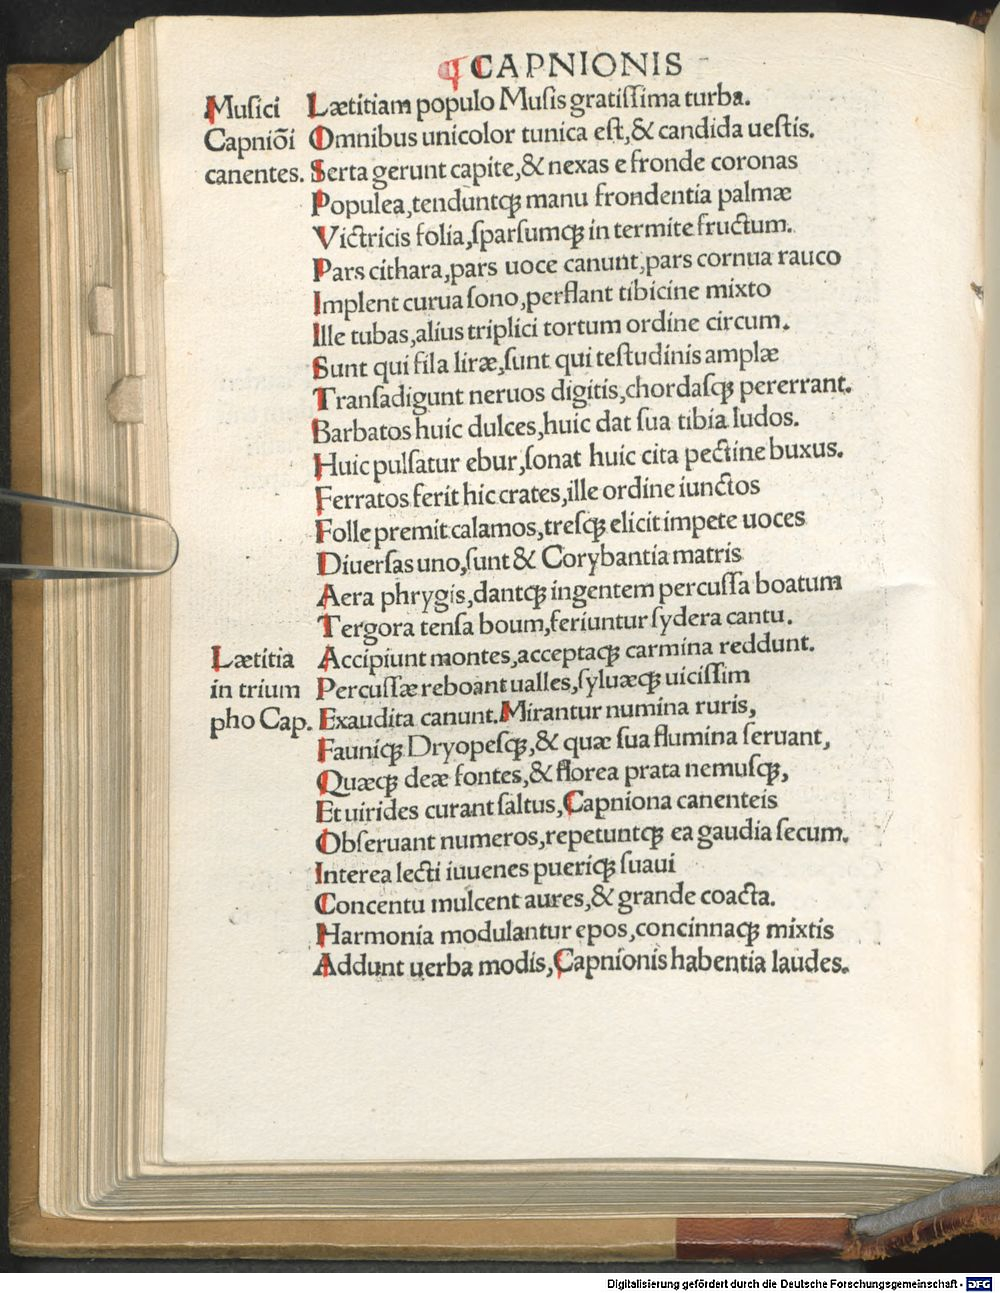 ¶ CAPNIONIS
Muſici
Capniōi
canentes.
Lætitiam populo Muſis gratiſſima turba.
Omnibus unicolor tunica eſt, & candida ueſtis.
Serta gerunt capite, & nexas e fronde coronas
Populea, tenduntqꝫ manu frondentia palmæ
Victricis folia, ſparſumqꝫ in termite fructum.
Pars cithara, pars uoce canunt, pars cornua rauco
Implent curua ſono, perflant tibicine mixto
Ille tubas, alius triplici tortum ordine circum.
Sunt qui fila liræ, ſunt qui teſtudinis amplæ
Tranſadigunt neruos digitis, chordaſqꝫ pererrant.
Barbatos huic dulces, huic dat ſua tibia ludos.
Huic pulſatur ebur, ſonat huic cita pectine buxus.
Ferratos ferit hic crates, ille ordine iunctos
Folle premit calamos, treſqꝫ elicit impete uoces
Diuerſas uno, ſunt & Corybantia matris
Aera phrygis, dantqꝫ ingentem percuſſa boatum
Tergora tenſa boum, feriuntur ſydera cantu.
Lætitia
in trium
pho Cap.
Accipiunt montes, acceptaqꝫ carmina reddunt.
Percuſſæ reboant ualles, ſyluæqꝫ uiciſſim
Exaudita canunt. Mirantur numina ruris,
Fauniqꝫ Dryopeſqꝫ, & quæ ſua flumina ſeruant,
Quæqꝫ deæ fontes, & florea prata nemuſqꝫ,
Et uirides curant ſaltus, Capniona canenteis
Obſeruant numeros, repetuntqꝫ ea gaudia ſecum.
Interea lecti iuuenes pueriqꝫ ſuaui
Concentu mulcent aures, & grande coacta.
Harmonia modulantur epos, concinnaqꝫ mixtis
Addunt uerba modis, Capnionis habentia laudes.
Digitalisierung gefördert durch die Deutsche Forschungsgemeinschaft - DFG